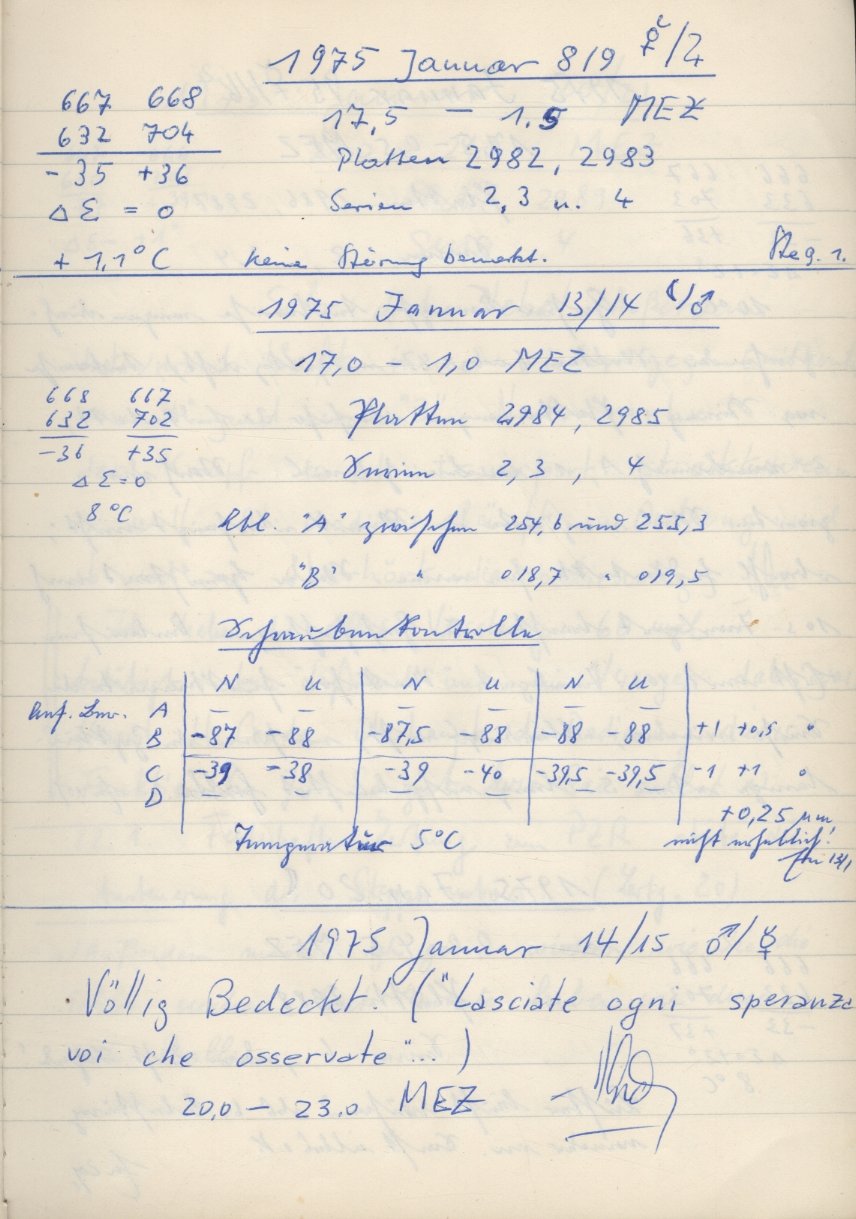 1975 Januar 8/9 ☿/♃
667 668
632 704
-35 +36
ΔΣ = 0
+ 1,1°C
17,5 — 1.5 MEZ
Platten 2982, 2983
Serien 2,3 u. 4
keine Störung bemerkt.
1975 Januar 13/14 ☾/♂
17,0 - 1,0 MEZ
668 667
632 702
-36 +35
ΔΣ=0
8°C
Platten 2984, 2985
Serien 2,3, 4
Abl. "A" zwischen 254,6 und 255,3
"B" " 018,7 " 019,5
Schraubenkontrolle
N U N U N U
Auf. Bew. A
B -87 -88 -87,5 -88 -88 -88 +1 +0,5 0
C -39 -38 -39 -40 -39,5 -39,5 -1 +1 0
D
+0,25 μm
Temperatur 5°C
nicht erheblich!
13/1
1975 Januar 14/15 ♂/☿
Völlig Bedeckt! ("Lasciate ogni speranza
voi che osservate"...)
20,0 — 23.0 MEZ